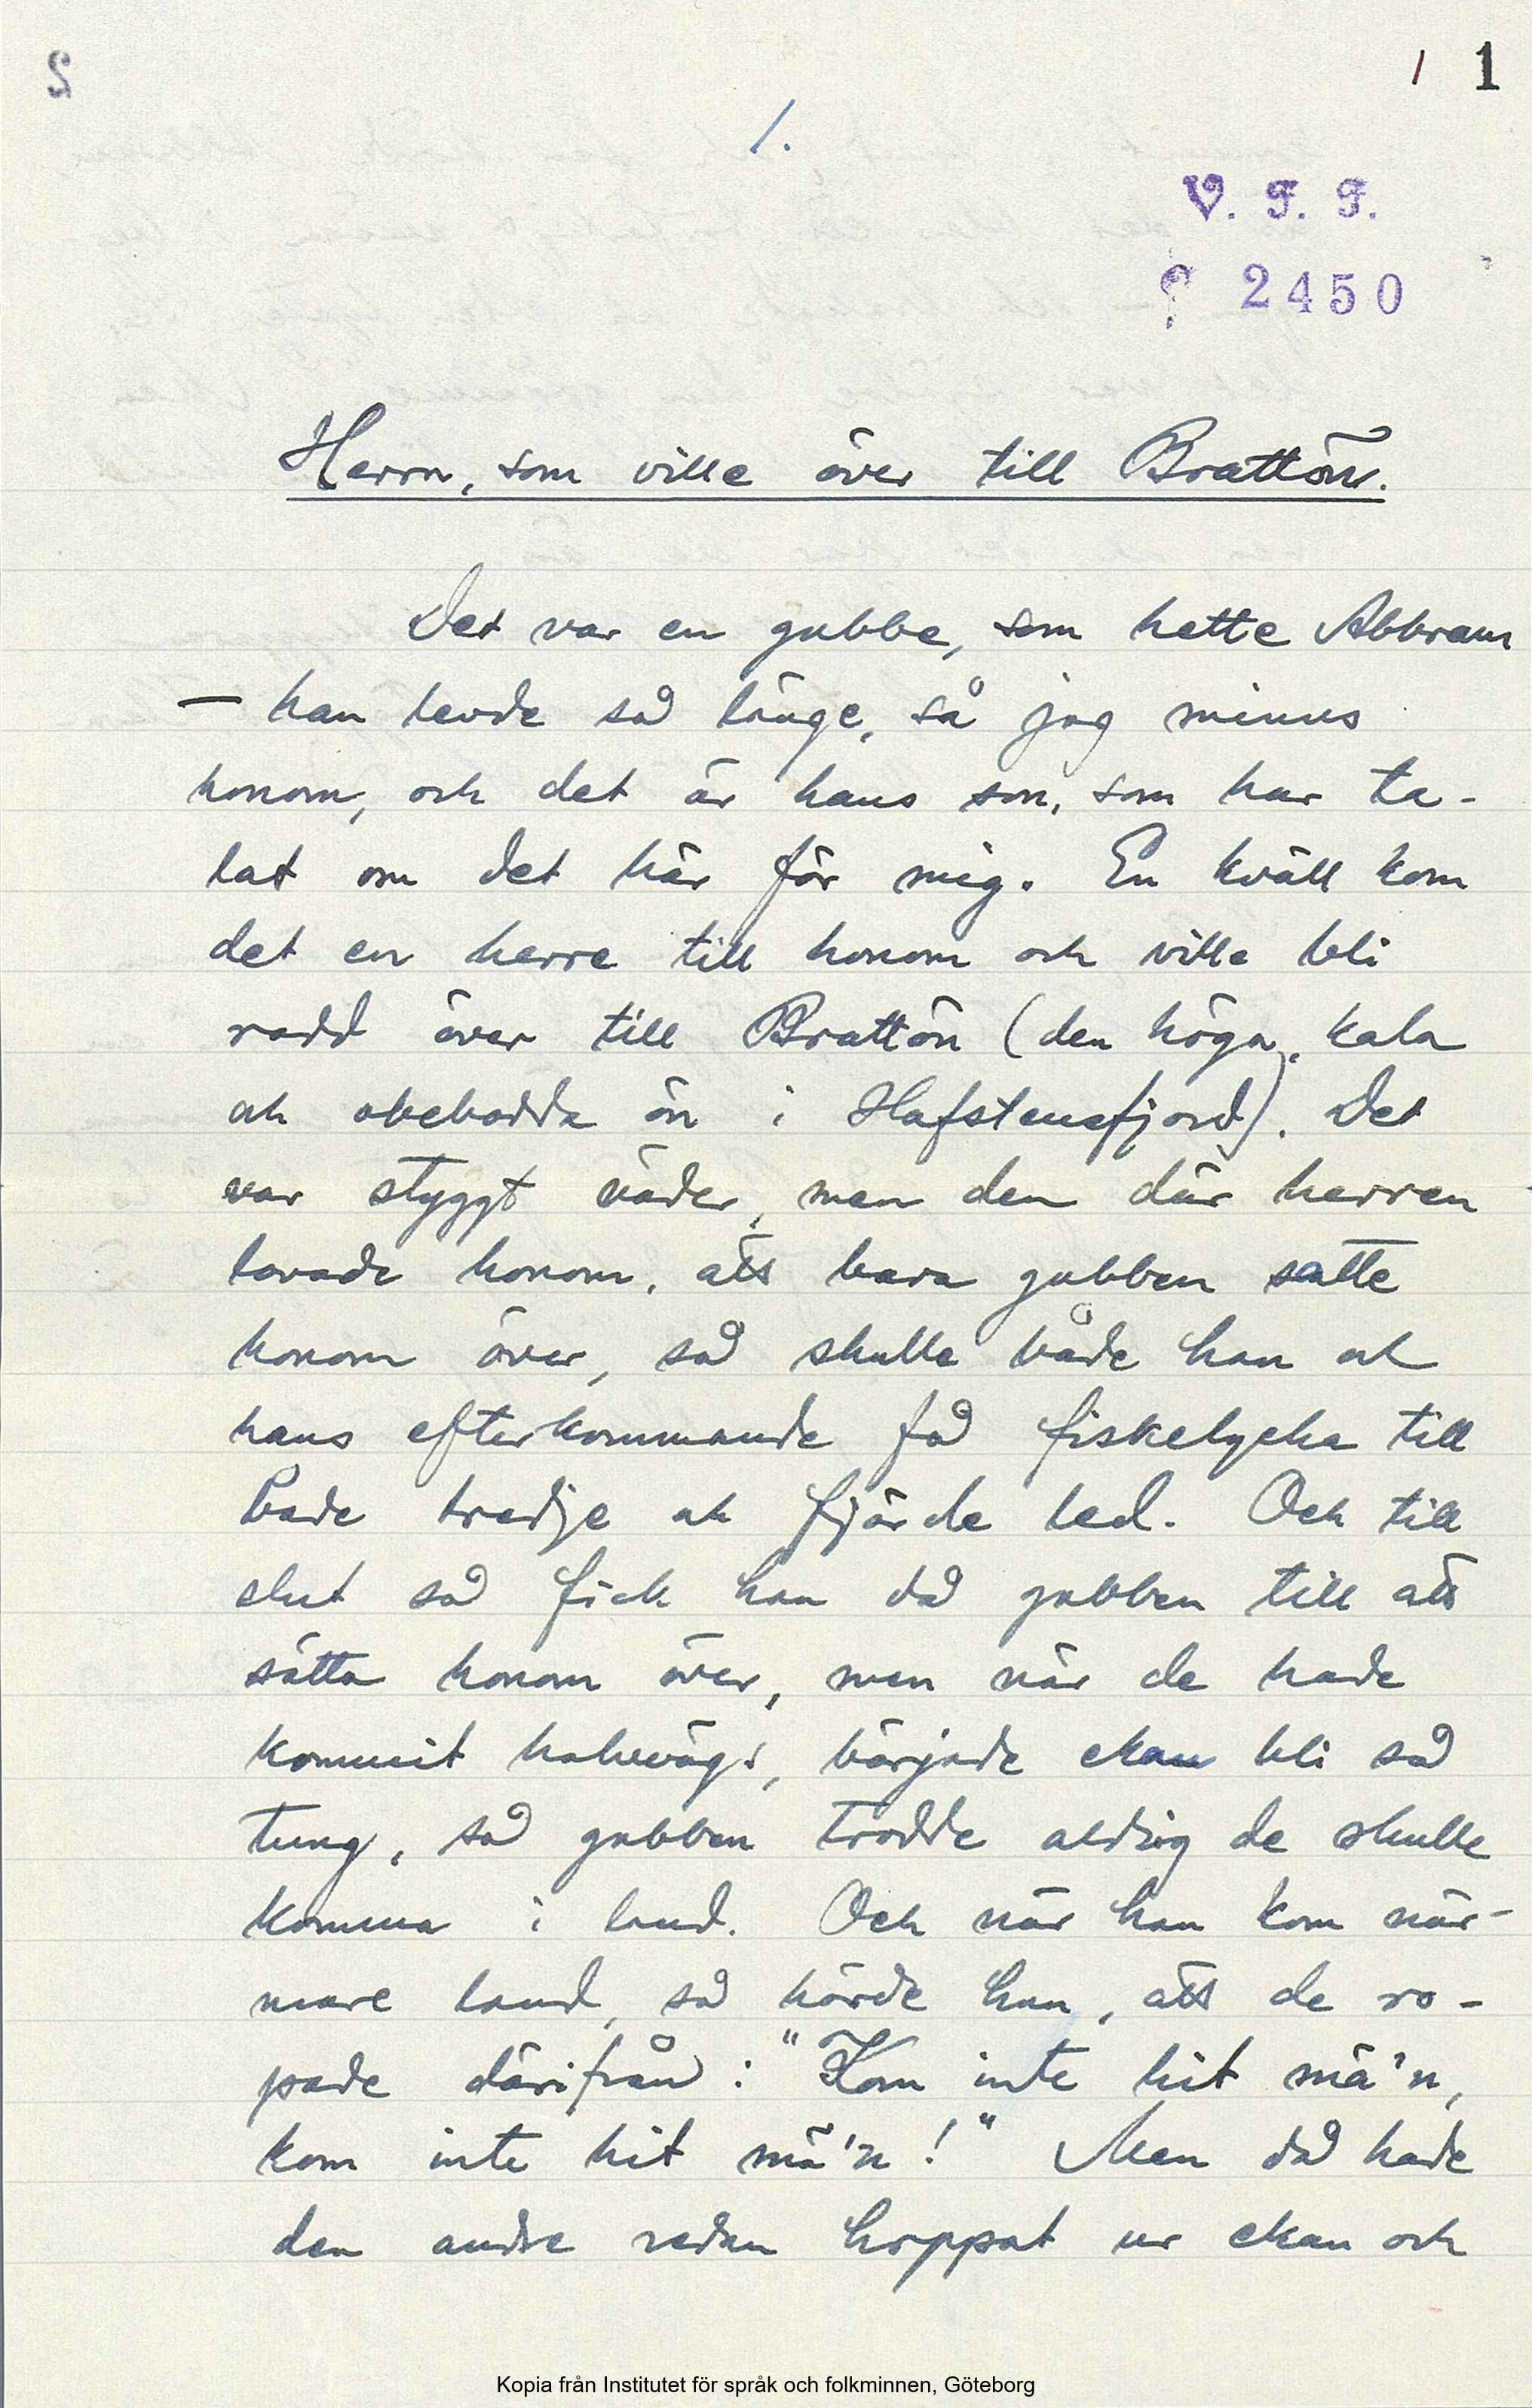 1 1
1.
V. F. F.
2450
Herrn, som ville över till Brattön.
Det var en gubbe, som hette Abbram
— han levde så länge, så jag minns
honom, och det är hans son, som har ta-
lat om det här för mig. En kväll kom
det en herre till honom och ville bli
rodd över till Brattön (den höga, kala
och obebodda ön i Hafstensfjord). Det
var styggt väder, men den där herren
lovade honom, att bara gubben satte
honom över, så skulle både han och
hans efterkommande få fiskelycka till
både tredje och fjärde led. Och till
slut så fick han då gubben till att
sätta honom över, men när de hade
kommit halvvägs, började ekan bli så
tung, så gubben trodde aldrig de skulle
komma i land. Och när han kom när-
mare land, så hörde han, att de ro-
pade därifrån: "Kom inte hit mä'n,
kom inte hit mä'n!" Men då hade
den andre redan hoppat ur ekan och
Kopia från Institutet för språk och folkminnen, Göteborg